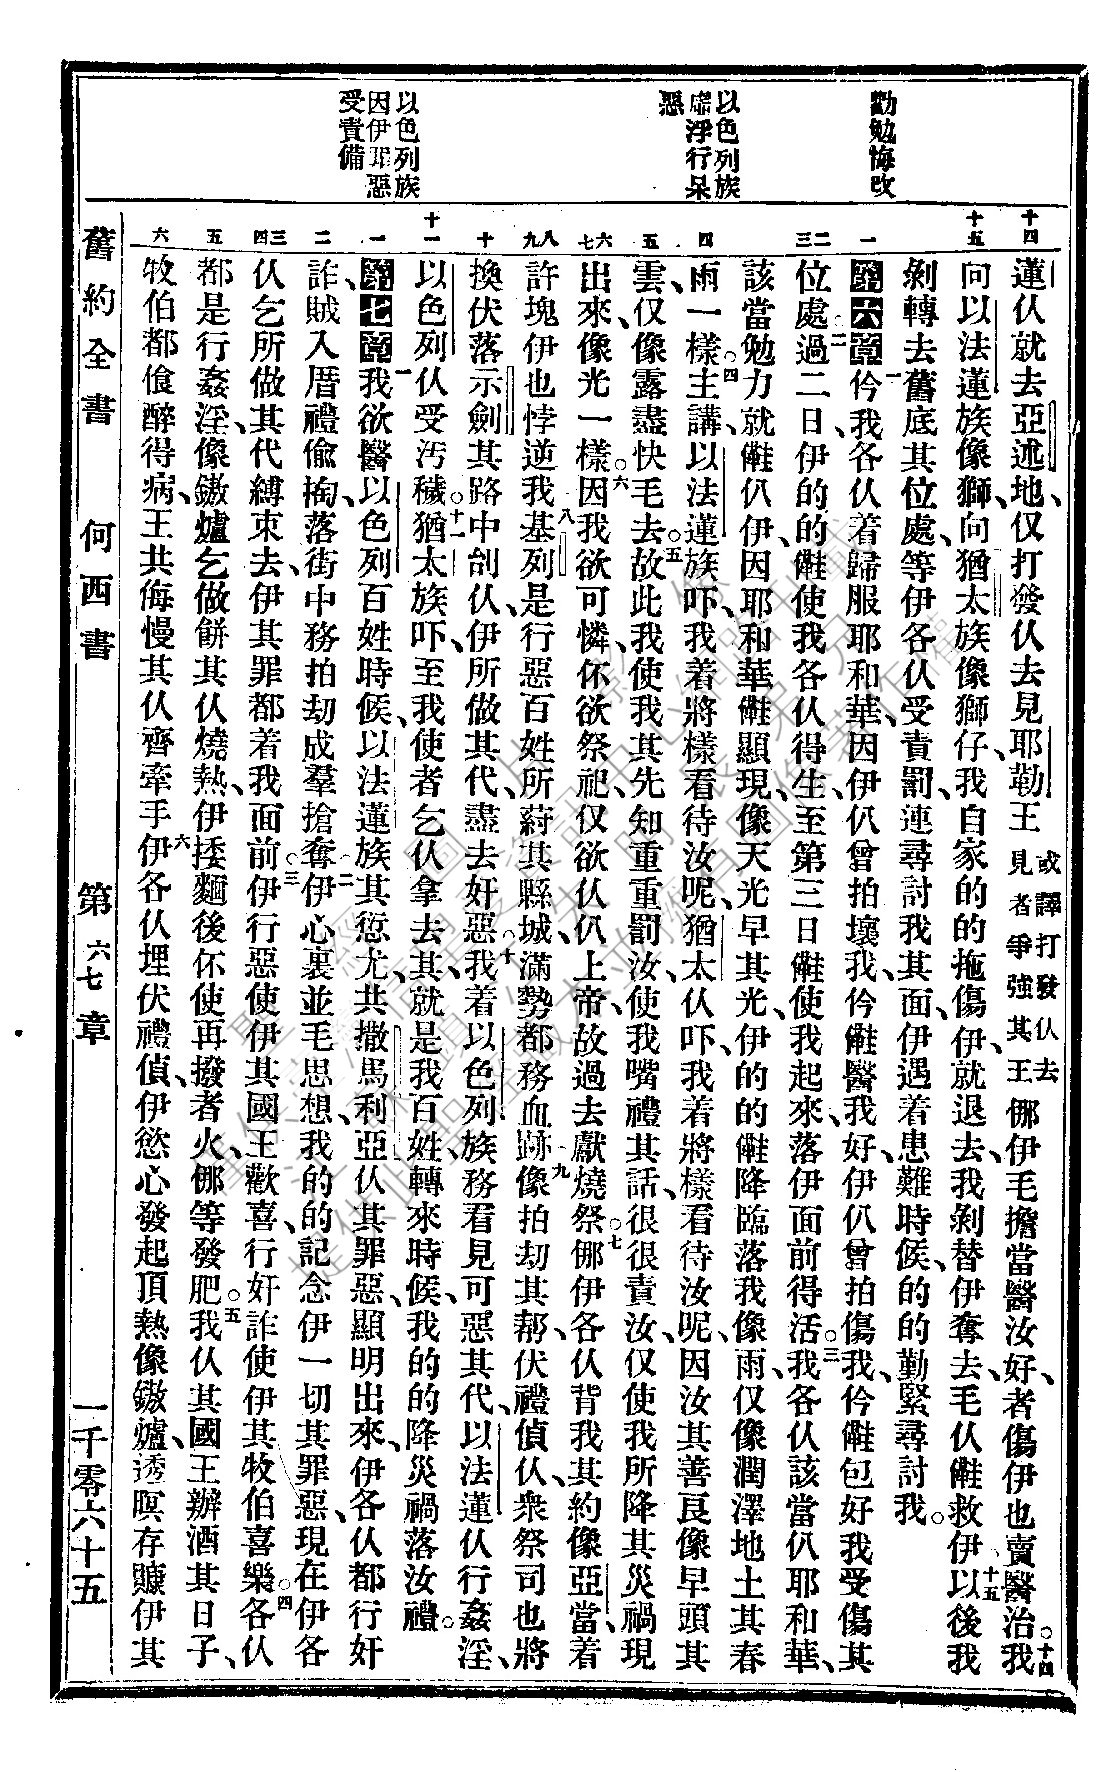 勸勉悔改
以色列族
虛浮行呆
惡
以色列族
因伊罪惡
受責備
蓮仈就去亞述地、仅打發仈去見耶勒王 或譯打發仈去見者爭強其王 㑚伊毛擔當醫汝好、者傷伊也賣醫治。十四我
向以法蓮族像獅、向猶太族像獅仔、我自家的的拖傷伊、就退去、我剝替伊奪去、毛仈𠆧救伊、十五以後我
剝轉去舊底其位處、等伊各仈受責罰、連尋討我其面、伊遇着患難時候、的的勤緊尋討我。
第六章 一仱我各仈着歸服耶和華、因伊仈曾拍壞我、仱𠆧醫我好、伊仈曾拍傷我、仱𠆧包好我受傷其
位處、二過二日伊的的𠆧使我各仈得生、至第三日𠆧使我起來、落伊面前得活。三我各仈該當仈耶和華、
該當勉力就𠆧仈伊、因耶和華𠆧顯現、像天光早其光、伊的的𠆧降臨落我、像雨、仅像潤澤地土其春
雨一樣。四主講、以法蓮族吓、我着將樣看待汝呢、猶太仈吓、我着將樣看待汝呢、因汝其善良像早頭其
雲、仅像露盡快毛去。五故此我使我其先知重重罰汝、使我嘴禮其話、很很責汝、仅使我所降其災禍現
出來、像光一樣。六因我欲可憐、伓欲祭祀、仅欲仈仈上帝、故過去獻燒祭。七㑚伊各仈背我其約像亞當、着
許塊伊也悖逆我。八基列、是行惡百姓所蒔其縣城、滿勢都務血跡、九像拍劫其帮、伏禮偵仈、衆祭司也將
換伏落示劍其路中刣仈、伊所做其代盡去奸惡。十我着以色列族務看見可惡其代、以法蓮仈行姦淫、
以色列仈受汚穢。十一猶太族吓、至我使者乞仈拿去其、就是我百姓、轉來時候、我的的降災禍落汝禮。
第七章 一我欲醫以色列百姓時候、以法蓮族其愆尤、共撒馬利亞仈其罪惡、顯明出來、伊各仈都行奸
詐、賊入厝禮偷掏、落街中務拍劫成羣搶奪。二伊心裏並毛思想、我的的記念伊一切其罪惡、現在伊各
仈乞所做其代縛束去、伊其罪都着我面前。三伊行惡使伊其國王歡喜、行奸詐使伊其牧伯喜樂。四各仈
都是行姦淫、像鏾爐乞做餅其仈燒熱、伊捼麵後伓使再撥者火、㑚等發肥。五我仈其國王辦酒其日子、
牧伯都飡醉得病、王共侮慢其仈齊牽手。六伊各仈埋伏禮偵、伊慾心發起頂熱像鏾爐、透暝存䁬、伊其
舊約全書 何西書 第六七章 一千零六十五